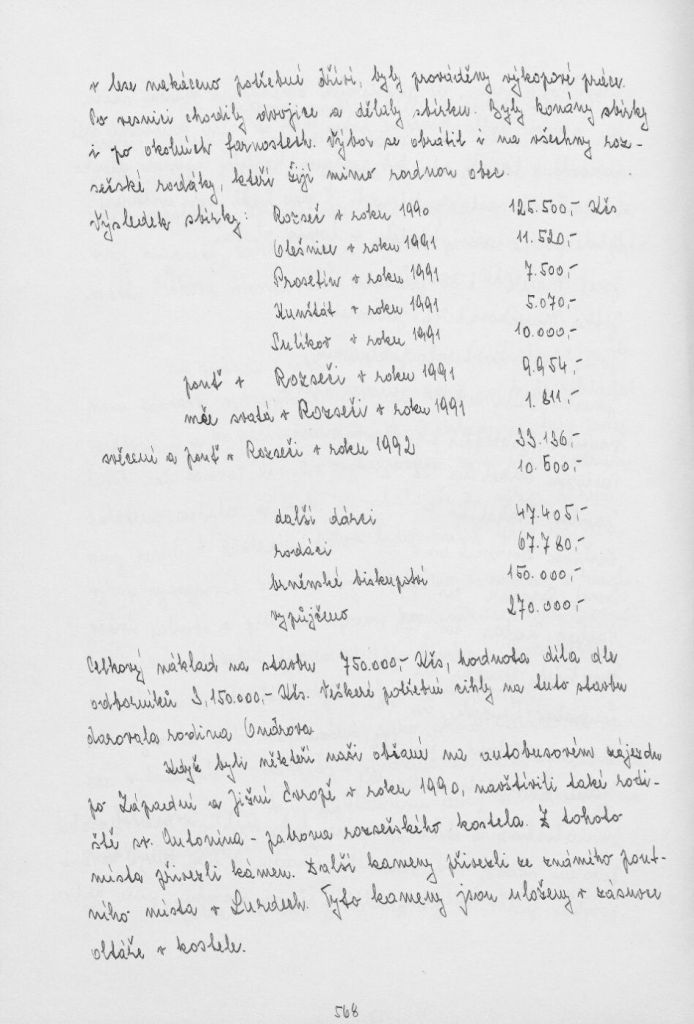 v lese nakáceno potřebné dříví, byly prováděny výkopové práce.
Po vesnici chodily dvojice a dělaly sbírku. Byly konány sbírky
i po okolních farnostech. Výbor se obrátil i na všechny roz-
sečské rodáky, kteří žijí mimo rodnou obec.
Výsledek sbírky: Rozseč v roku 1990 125.500,- Kčs
Olešnice v roku 1991 11.520,-
Prosetín v roku 1991 7.500,-
Kunštát v roku 1991 5.070,-
Sulíkov v roku 1991 10.000,-
pouť v Rozseči v roku 1991 9.954,-
mše svatá v Rozseči v roku 1991 1.811,-
svěcení a pouť v Rozseči v roku 1992 33.136,-
10.500,-
další dárci 47.405,-
rodáci 67.780,-
brněnské biskupství 150.000,-
vypůjčeno 270.000,-
Celkový náklad na stavbu 750.000,- Kčs, hodnota díla dle
odborníků 3,150.000,- Kčs. Veškeré potřebné cihly na tuto stavbu
darovala rodina Ondrova.
Když byli někteří naši občané na autobusovém zájezdu
po Západní a Jižní Evropě v roku 1990, navštívili také rodi-
ště sv. Antonína - patrona rozsečského kostela. Z tohoto
místa přivezli kámen. Další kameny přivezli ze známého pout-
ního místa v Lurdech. Tyto kameny jsou uloženy v zásuvce
oltáře v kostele.
568